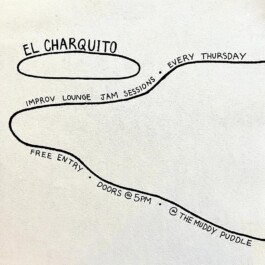 EL CHARQUITO
IMPROV LOUNGE JAM SESSIONS • EVERY THURSDAY
FREE ENTRY • DOORS @ 5PM • @ THE MUDDY PUDDLE